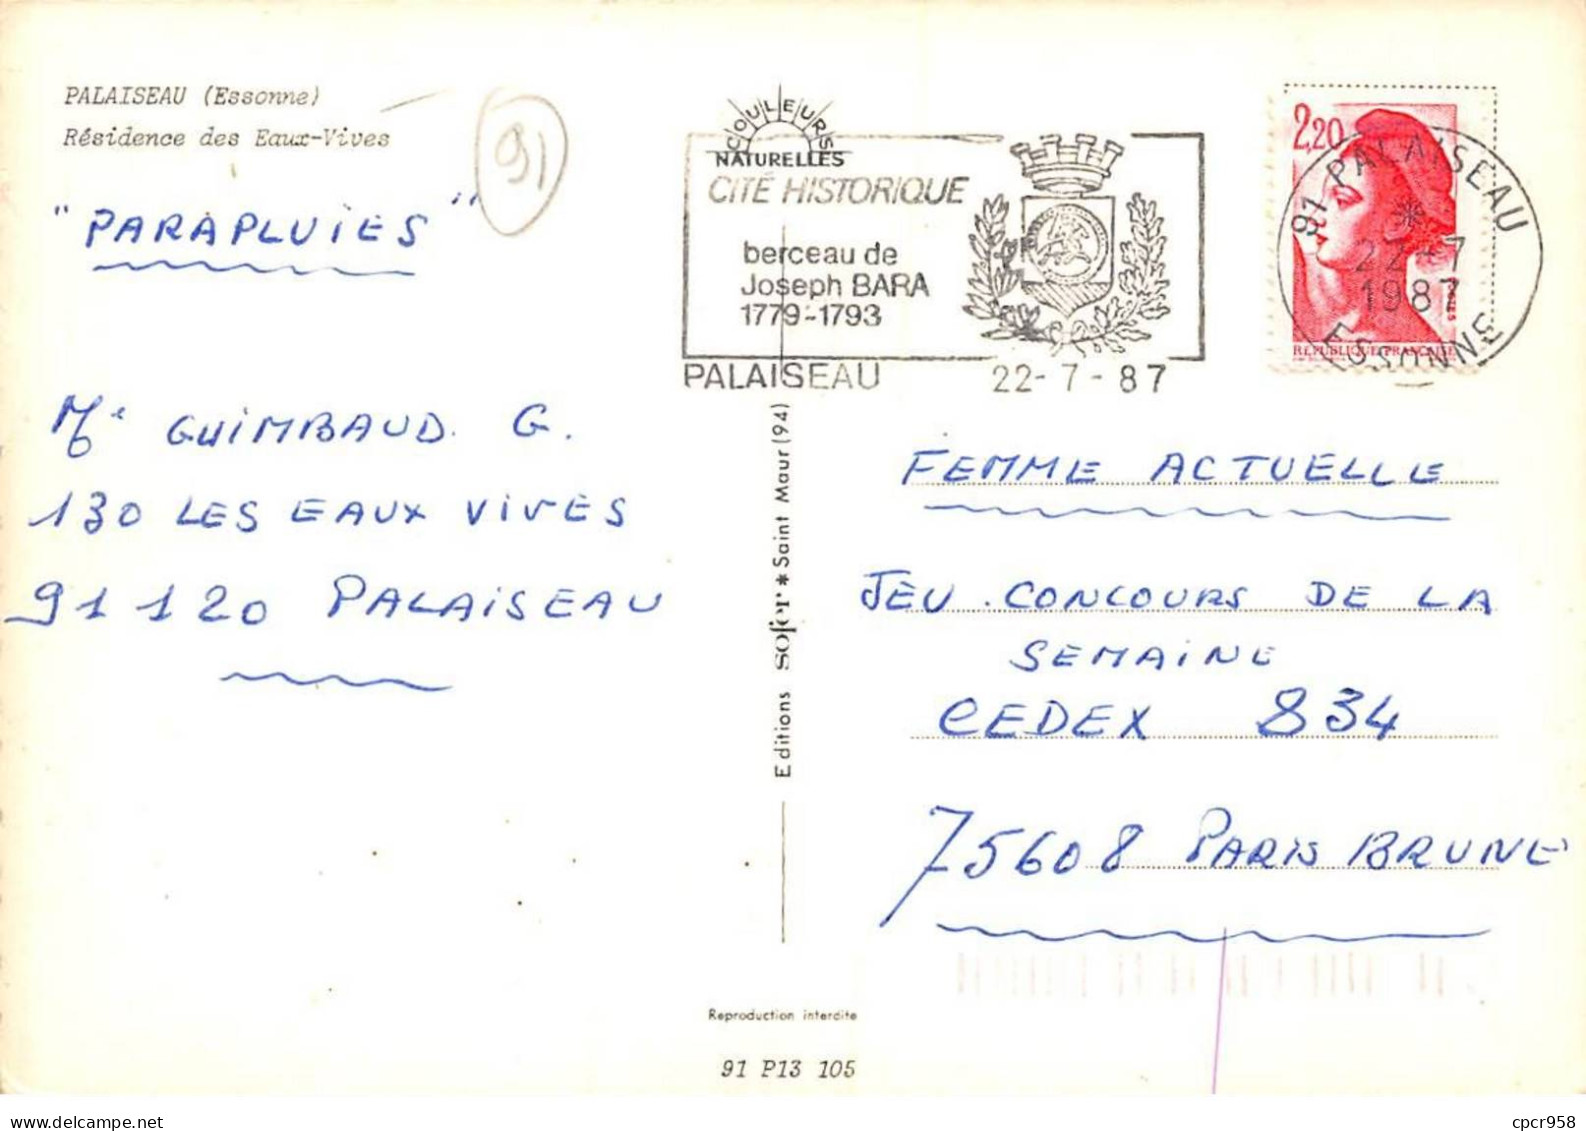 PALAISEAU (Essonne)
Résidence des Eaux-Vives
91
"PARAPLUIES"
COULEURS
NATURELLES
CITÉ HISTORIQUE
berceau de
Joseph BARA
1779-1793
PALAISEAU 22-7-87
2,20
RÉPUBLIQUE FRANÇAISE
91 PALAISEAU
22-7
1987
ESSONNE
GUIMBAUD. G.
130 LES EAUX VIVES
91120 PALAISEAU
Editions SOFER * Saint Maur (94)
FEMME ACTUELLE
JEU. CONCOURS DE LA
SEMAINE
CEDEX 834
75608 PARIS BRUNE
Reproduction interdite
91 P13 105
cpcr958